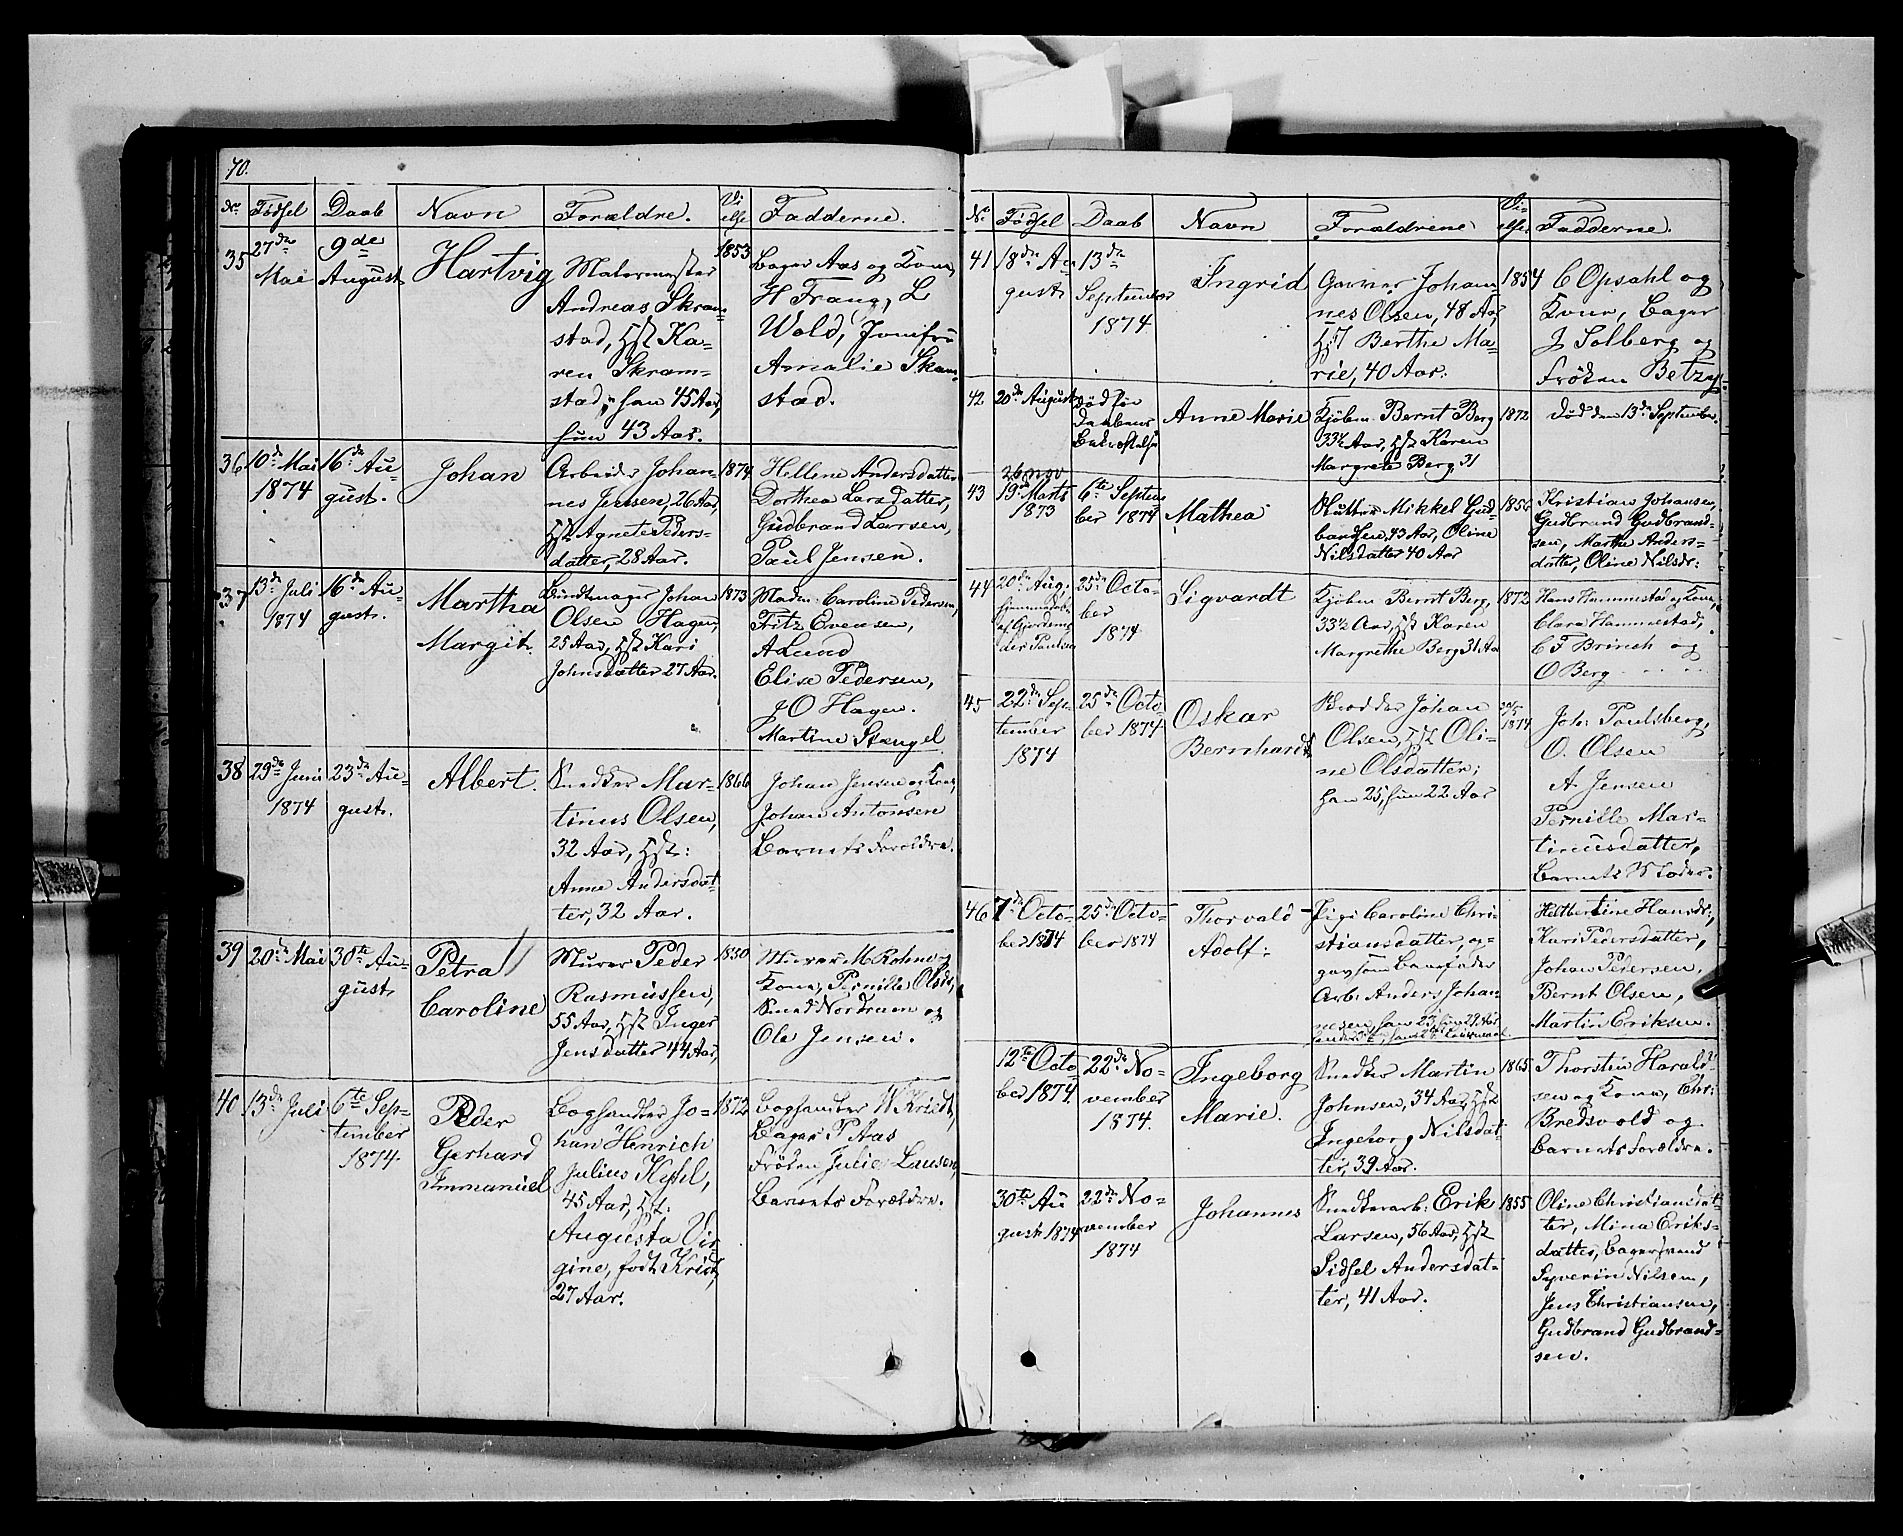 70.
No. Fødsel Daab Navn Forældre. Vielse Fadderne.
35 27de Mai 9de August Hartvig 1853
Malermester
Andreas Skram-
stad, Hst. Ka-
ren Skram-
stad; han 45 Aar,
hun 43 Aar.
Bager Aas og Kone,
H Frang, L
Wold, Jomfru
Amalie Skram-
stad.
36 10de Mai 1874 16de Au-
gust. Johan 1874
Arbeider Johan-
nes Jensen, 26 Aar,
Hst. Agnete Peders-
datter, 28 Aar.
Hellene Andersdatter
Dorthea Larsdatter,
Gudbrand Larsen,
Paul Jensen.
37 13de Juli 1874 16de Au-
gust. Martha
Margit. 1873
Buntmager Johan
Olsen Hagen,
25 Aar, Hst. Kari
Johnsdatter 27 Aar.
Madm. Caroline Pedersen,
Fritz Evensen,
A Lund
Elise Pedersen,
J O Hagen.
Martine Stengel
38 29de Juni 1874 23de Au-
gust. Albert. 1866
Snedker Mar-
tinus Olsen,
32 Aar, Hst:
Anne Andersdat-
ter, 32 Aar.
Johan Jensen og Kone,
Johan Antonsen
Barnets Forældre.
39 20de Mai 30te Au-
gust Petra
Caroline 1850
Murer Peder
Rasmussen,
55 Aar, Hst. Inger
Jensdatter 44 Aar,
Murer M. Rohne og
Kone, Pernille Olsdr,
Smed Nordrum og
Ole Jensen.
40 13de Juli 6te Sep-
tember
1874. Peder
Gerhard
Immanuel 1872
Boghandler Jo-
han Henrich
Julius
45 Aar, Hst:
Augusta Vir-
gine, født
27 Aar.
Boghandler W
Bager P Aas
Frøken Julie
Barnets Forældre.
No. Fødsel Daab Navn Forældrene Vielse Fadderne.
41 18de Au-
gust 13de
September
1874 Ingrid 1854
Garver Johan-
nes Olsen, 48 Aar,
Hst Berthe Ma-
rie, 40 Aar.
C Opsahl og
Kone, Bager
J Solberg og
Frøken Betzy
42 20de August Død før
Daabens
Bekræftelse Anne Marie 1872
Kjøbm. Bernt Berg
33½ Aar, Hst. Karen
Margrete Berg, 31
Død den 13de September.
26 nov
43 19de Marts
1873 6te Septem-
ber 1874 Mathea 1856
Slutter Mikkel Gud-
bandsen, 43 Aar, Oline
Nilsdatter 40 Aar
Kristian Johansen,
Gudbrand Gudbrand-
sen, Marthe Anders-
datter, Oline Nilsdr:
44 20de Aug.
hjemmedøbt
af Gjordemo-
der Paulsen 25de Octo-
ber
1874 Sigvardt 1872
Kjøbm Bernt Berg,
33½ Aar, Hst Karen
Margrethe Berg 31 Aar
Hans Hammestad og Kone,
Clara Hammestad,
C F Brinch og
O Berg
45 22de Sep-
tember
1874 25de Octo-
ber 1874 Oskar
Bernhardt 1874
Johan
Olsen, Hst. Oli-
ne Olsdatter;
han 25, hun 22 Aar
Joh: Paulsberg,
O. Olsen
A Jensen
Pernille Mar-
tinusdatter,
Barnets Moder.
46 7de Octo-
ber 1874 25de Octo-
ber 1874 Thorvald
Adolf.
Pige Caroline Chri-
stiansdatter, op-
gav som Barnefader
Arb. Anders Johan-
nesen,
Heltbertine Hansdr:,
Kari Pedersdatter,
Johan Pedersen,
Bernt Olsen,
Martin Eriksen.
12te Octo-
ber 1874 22de No-
vember
1874. Ingeborg
Marie. 1865
Snedker Martin
Johnsen, 34 Aar, Hst
Ingeborg Nilsdat-
ter, 39 Aar.
Thorsten Harald-
sen og Kone, Chr:
Bredvold og
Barnets Forældre.
30te Au-
gust 1874 22de No-
vember
1874 Johannes 1855
Snedkerarb: Erik
Larsen, 56 Aar, Hst
Sidsel Andersdat-
ter, 41 Aar.
Oline Christiansdat-
ter, Mina Eriks-
datter, Bagersvend
Syverin Nilsen,
Jens Christiansen,
Gudbrand Gudbrand-
sen.